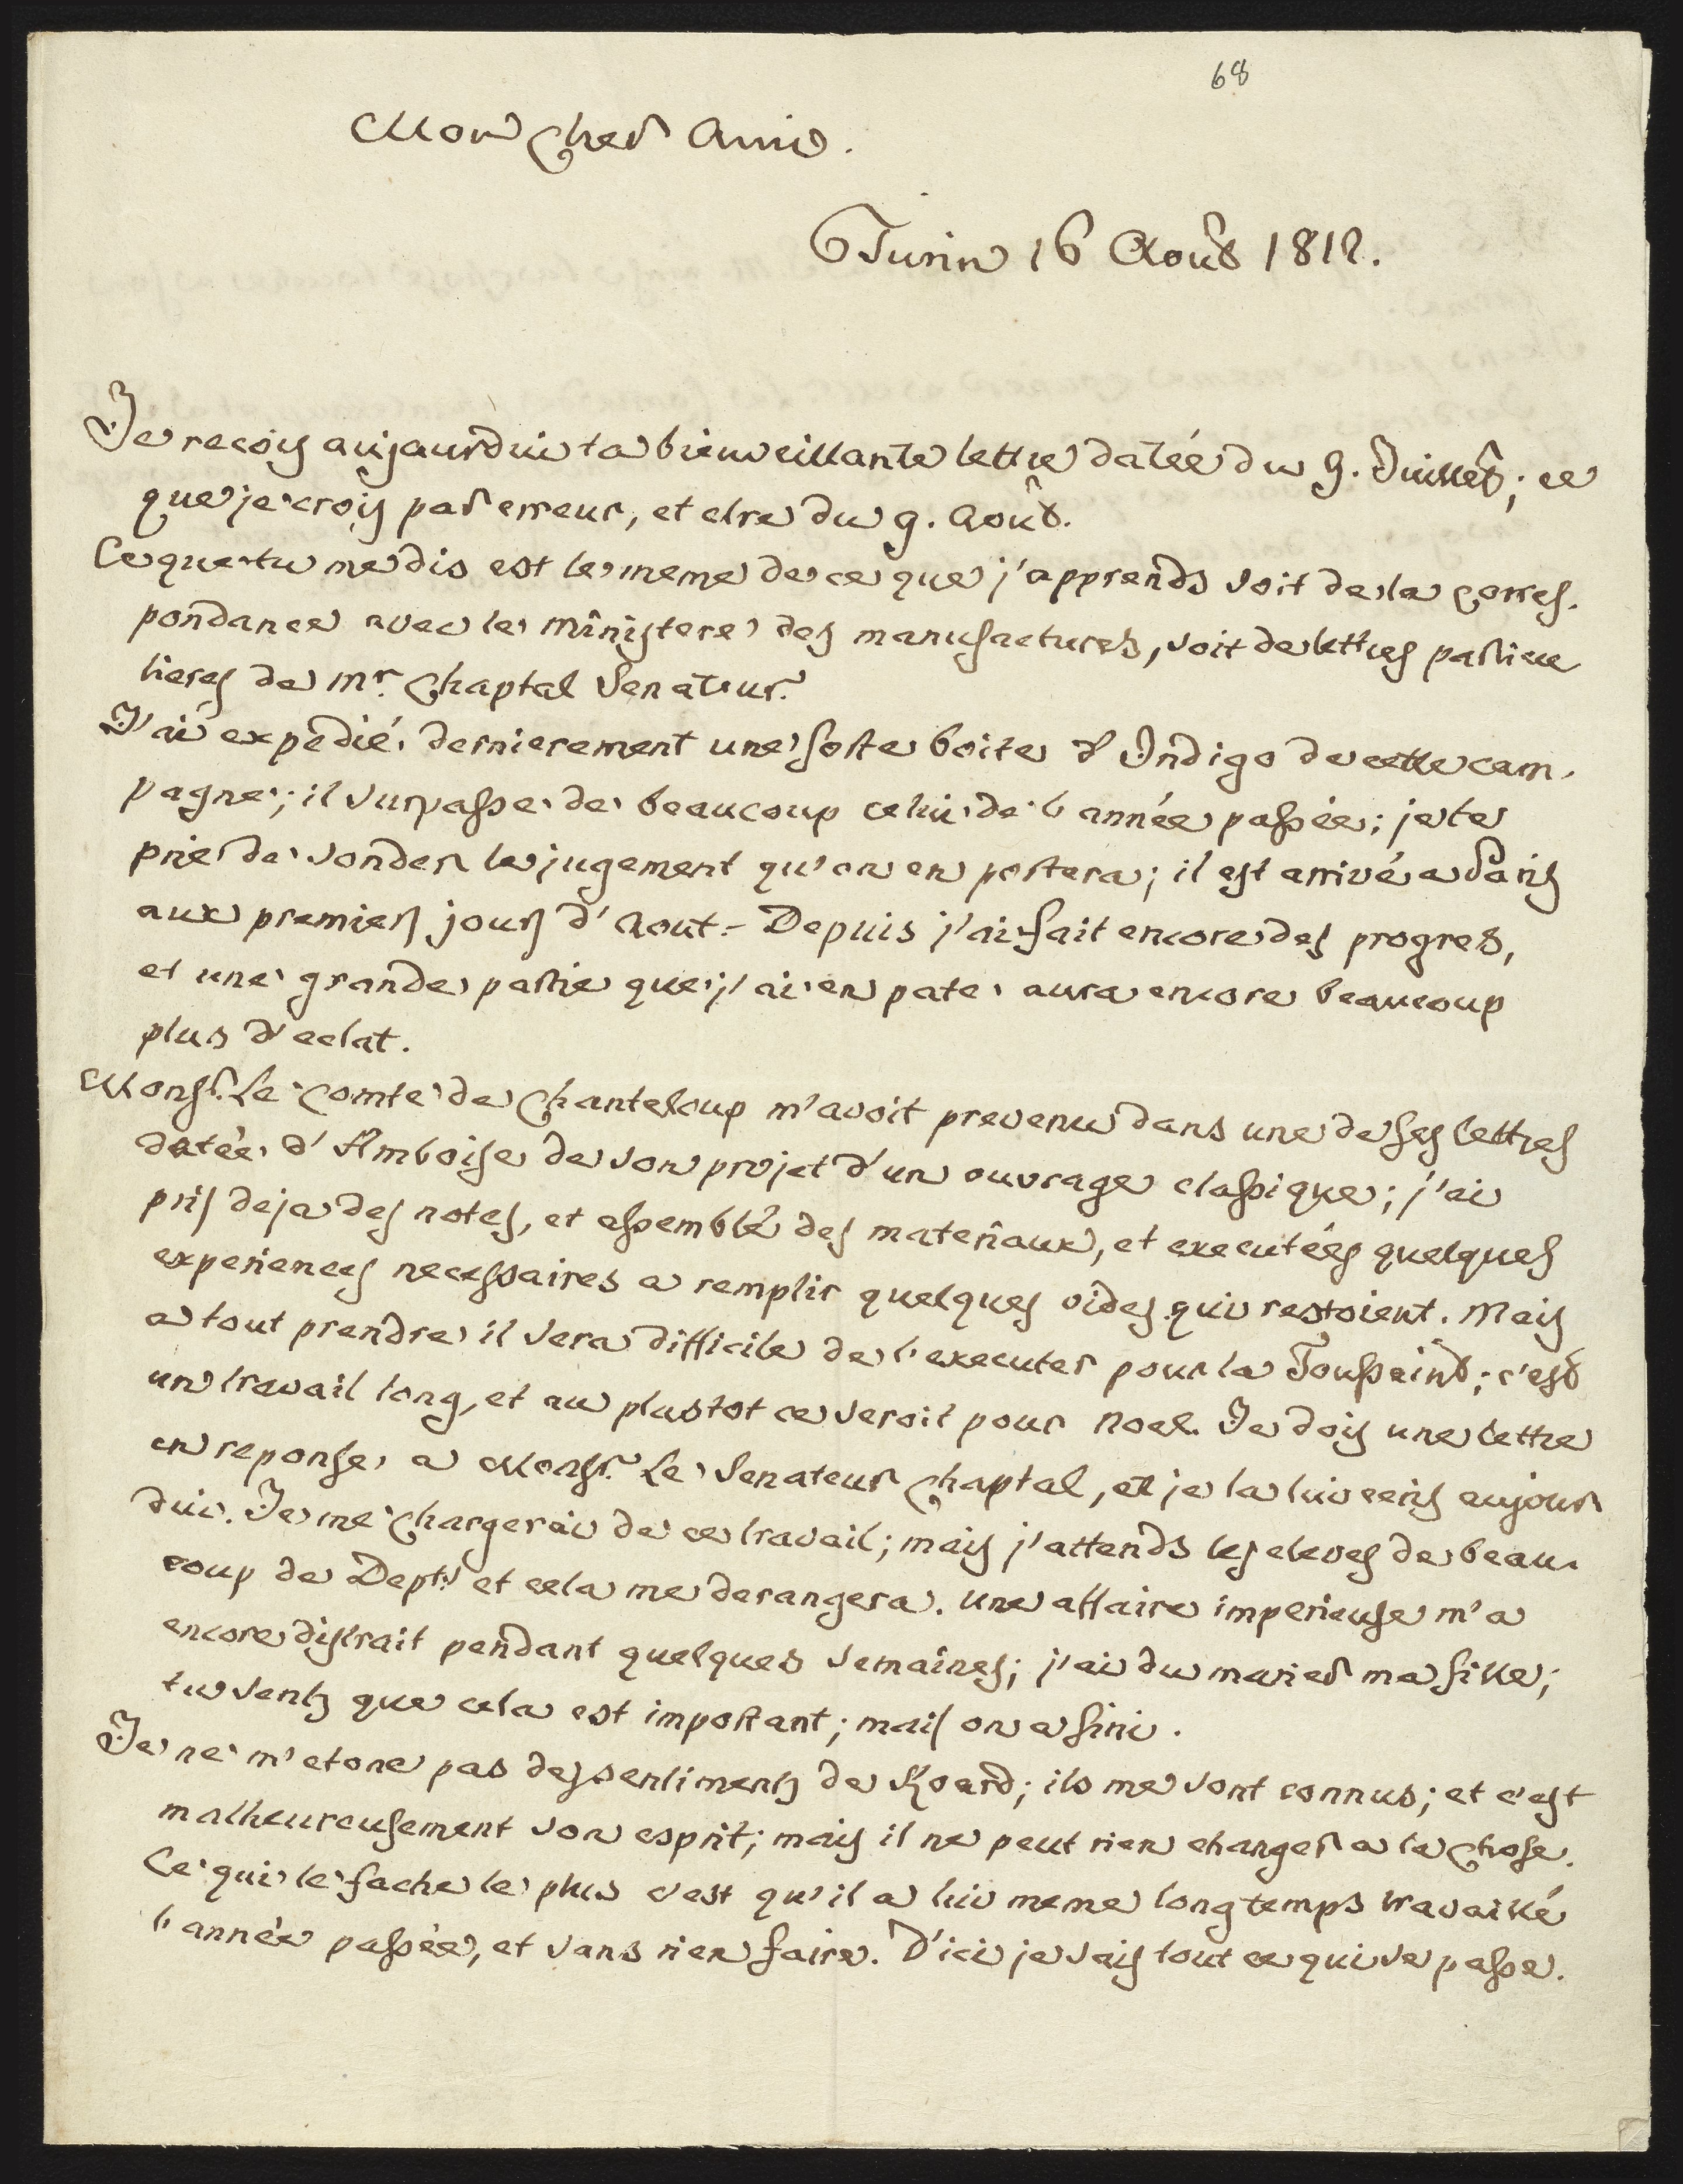 68
Mon cher Ami.
Turin 16 Août 1812.
Je reçois aujourdui ta bienveillante lettre datée du 9. Juillet; ce
que je crois par erreur, et etre du 9. Août.
Ce que tu me dis est le meme de ce que j'apprends soit de la corres-
pondance avec le ministere des manufactures, soit de lettres particu
lieres de Mr. Chaptal Senateur.
J'ai expedié dernierement une forte boite d'Indigo de cette cam-
pagne; il surpasse de beaucoup celui de l'année passée; je te
prie de sonder le jugement qu'on en portera; il est arrivé a Paris
aux premiers jours d'Aout.- Depuis j'ai fait encore des progres,
et une grande partie que j'ai en pate aura encore beaucoup
plus d'eclat.
Monsr. Le Comte de Chanteloup m'avoit prevenu dans une de ses lettres
datée d'Amboise de son projet d'un ouvrage classique; j'ai
pris deja des notes, et assemblé des materiaux, et executées quelques
experiences necessaires a remplir quelques vides qui restoient. Mais
a tout prendre il sera difficile de l'executer pour la Toussaint; c'est
un travail long, et au plustot ce seroit pour Noel. Je dois une lettre
en reponse a Monsr. Le Senateur Chaptal, et je la lui ecris aujour
dui. Je me chargerai de ce travail; mais j'attends les eleves de beau-
coup de Depts. et cela me derangera. Une affaire imperieuse m'a
encore distrait pendant quelques semaines; j'ai du marier ma fille;
tu sents que cela est important; mais on a fini.
Je ne m'etone pas des sentiments de Roard; ils me sont connus; et c'est
malheureusement son esprit; mais il ne peut rien changer a la chose.
Ce qui le fache le plus c'est qu'il a lui meme longtemps travaillé
l'année passée, et sans rien faire. D'ici je sais tout ce qui se passe.